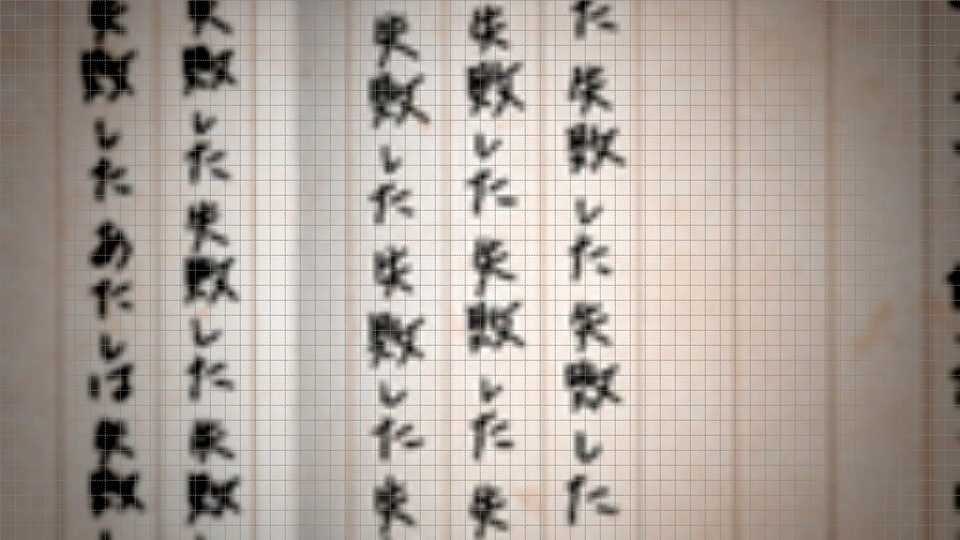 た失敗した失敗した
失敗した失敗した失
失敗した失敗した失
失敗した失敗した失敗し
失敗したあたしは失敗し